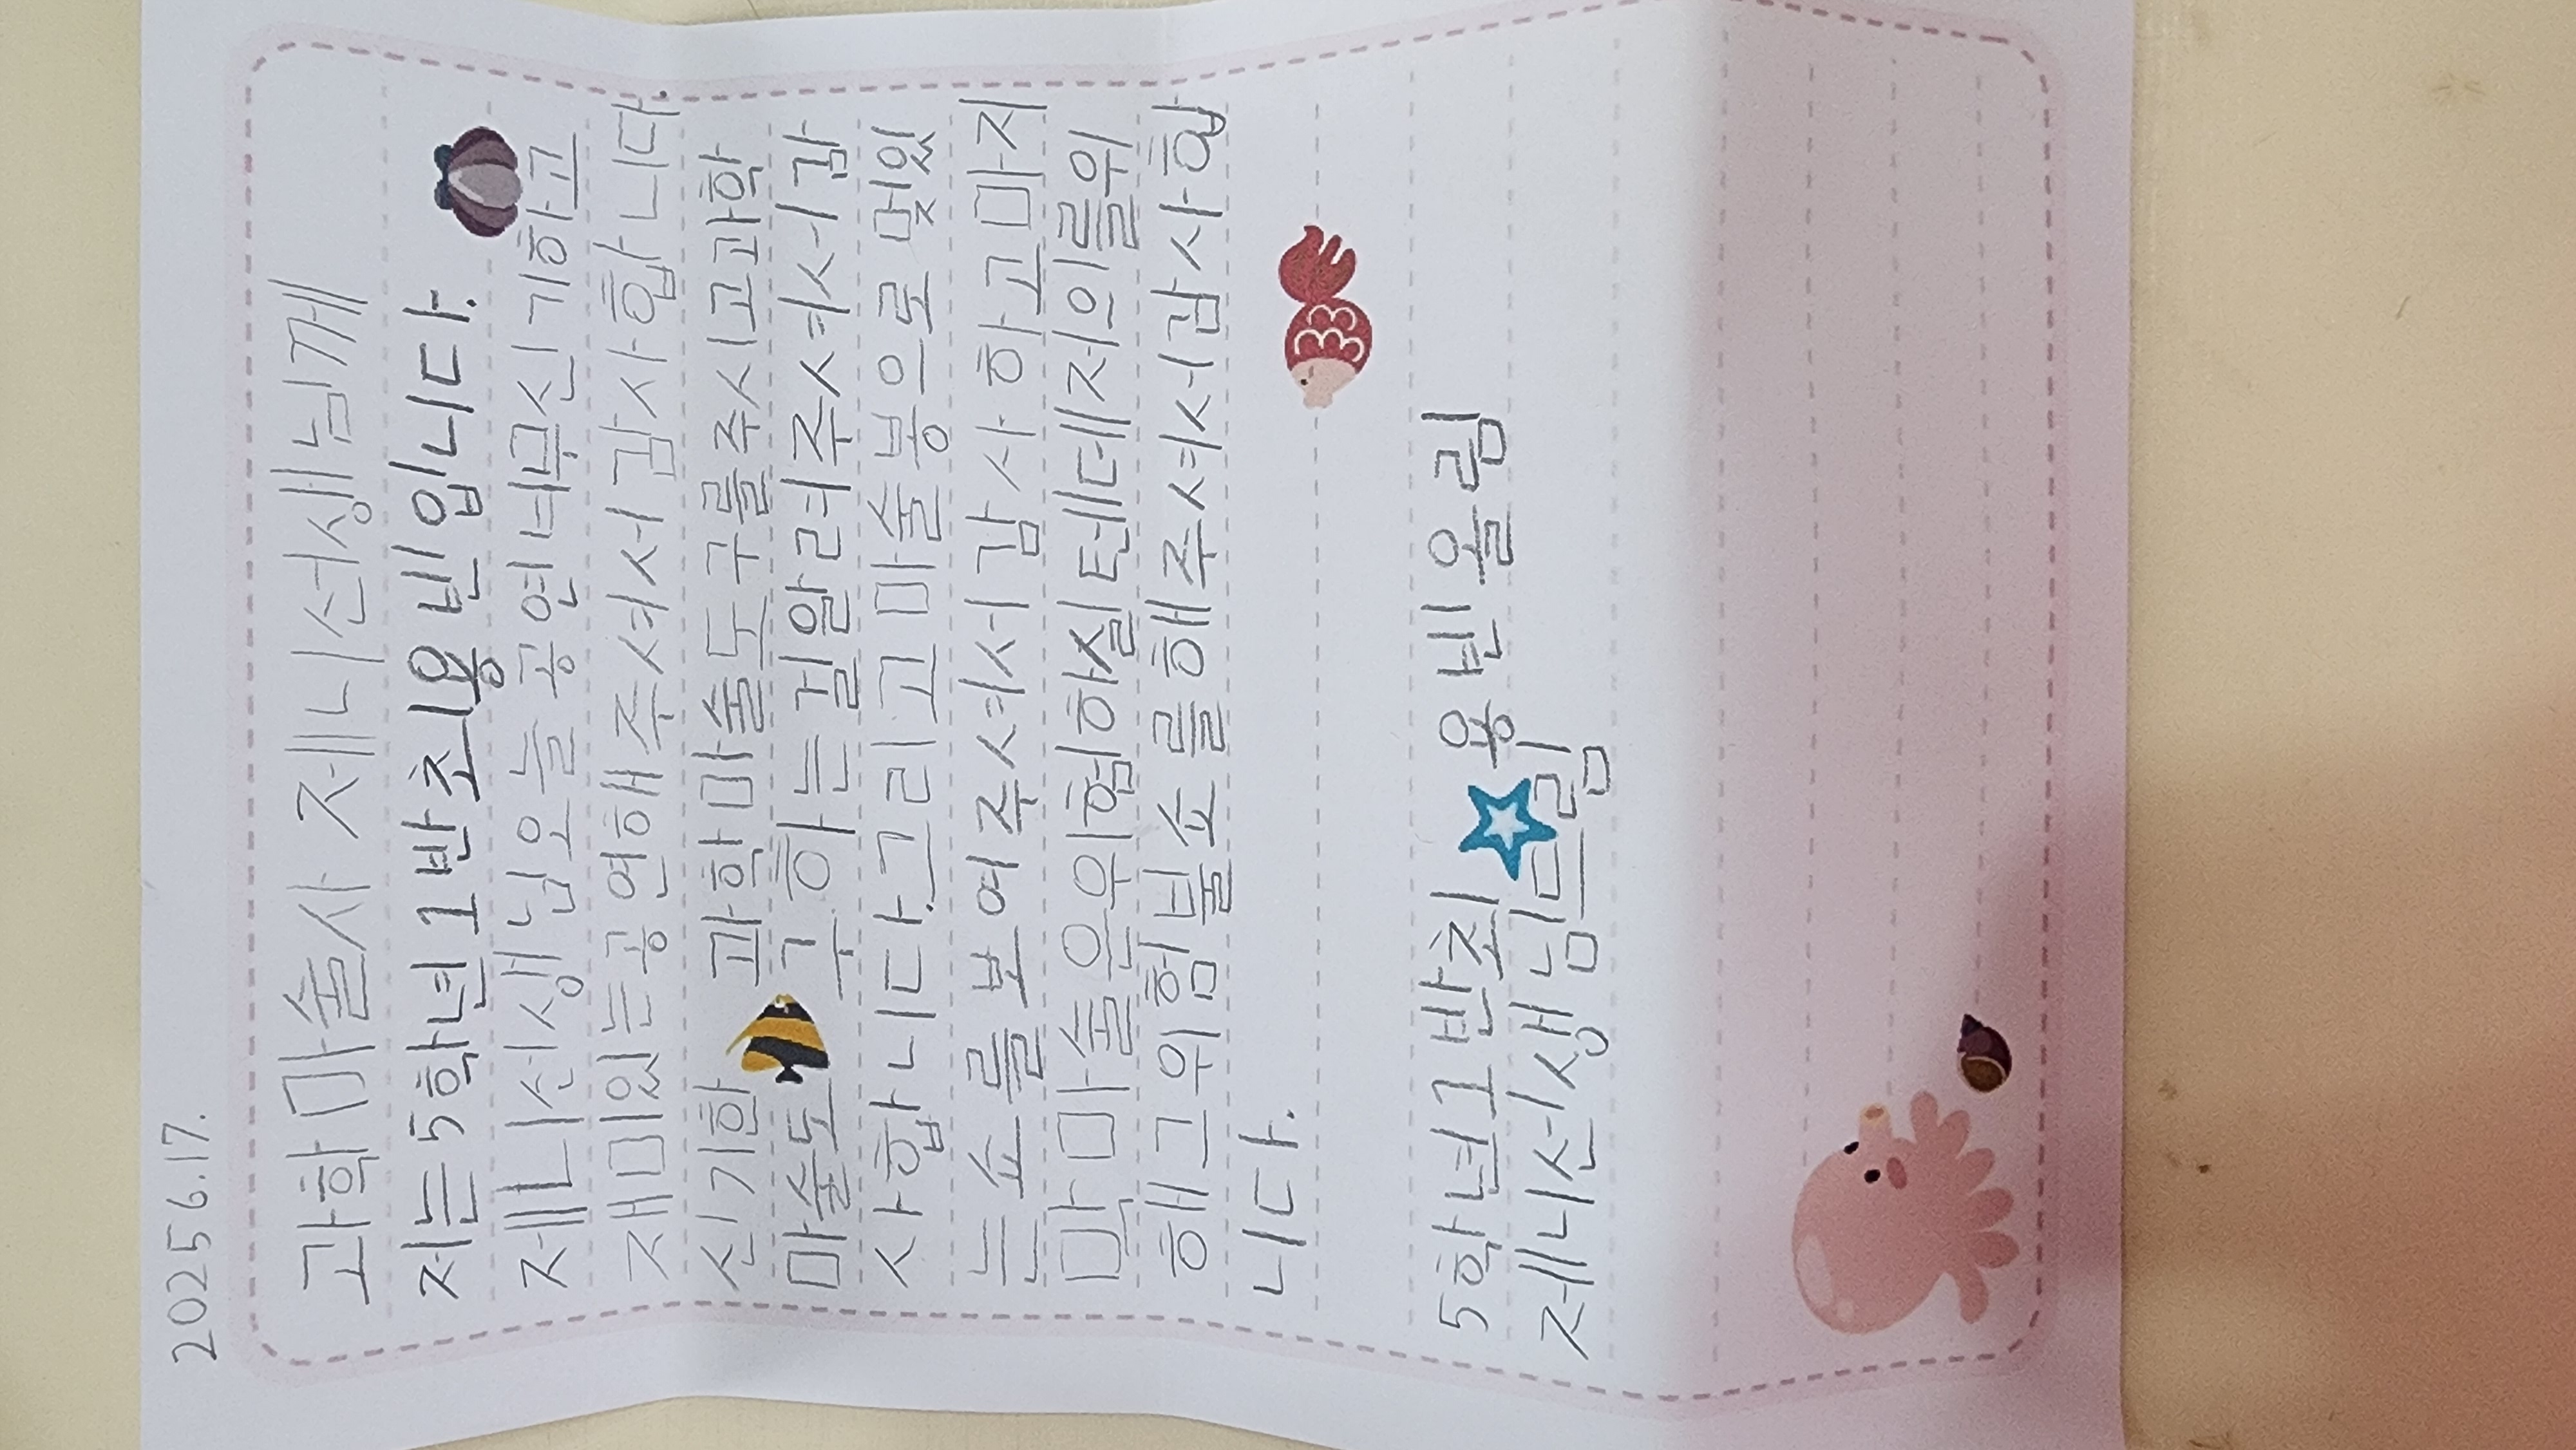 20256.17.
과학마술사 제니선생님께
저는5학년1반최용빈입니다.
제니선생님오늘공연너무신기하고
재미있는공연해주셔서감사합니다.
신기한 과학마술도구를주시고과학
마술도 구하는길알려주셔서감
사합니다.그리고마술봉으로멋있
는쇼를보여주셔서감사하고마지
막마술은위험하실텐데저의를위
해그위험불쇼를해주셔서감사합
니다.
5학년1반최용빈올림
제니선생님드림